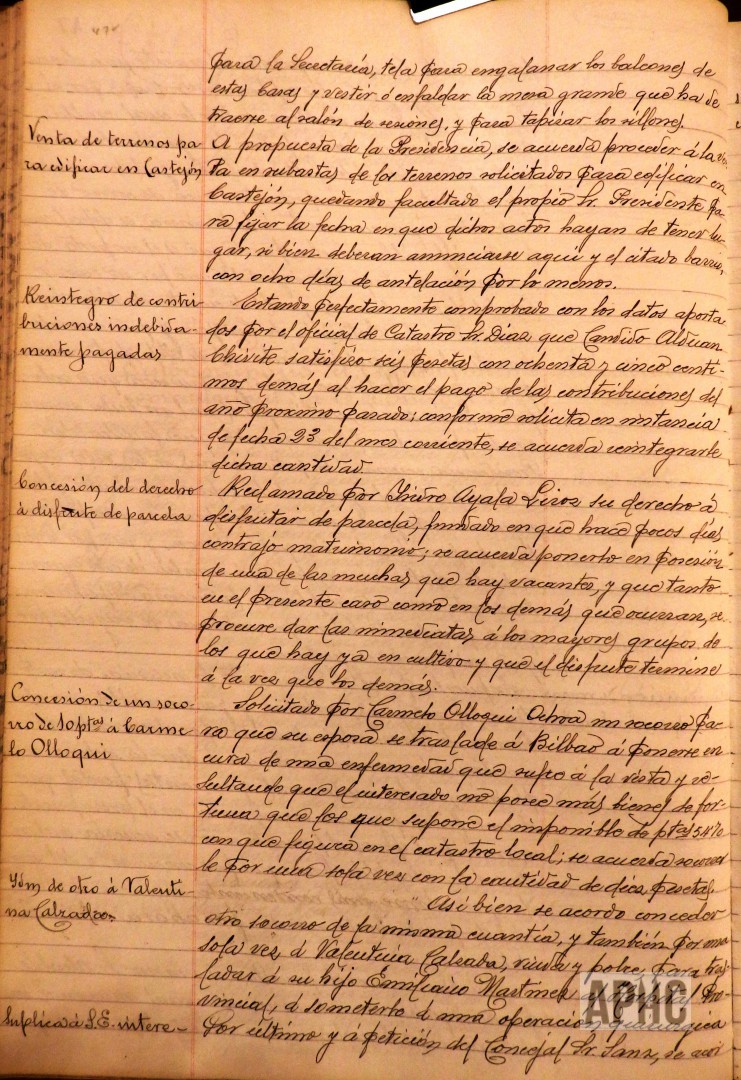 para la Secretaría, tela para engalanar los balcones de
estas Casas y vestir ó enfaldar la mesa grande que ha de
traerse al salón de sesiones, y para tapizar los sillones.
Venta de terrenos pa
ra edificar en Castejón
A propuesta de la Presidencia, se acuerda proceder á la ven
ta en subastas de los terrenos solicitados para edificar en
Castejón, quedando facultado el propio Sr. Presidente pa
ra fijar la fecha en que dichos actos hayan de tener lu
gar, si bien deberan anunciarse aqui y el citado barrio,
con ocho días de antelación por lo menos.
Reintegro de contri
buciones indebida-
mente pagadas
Estando perfectamente comprobado con los datos aporta
dos por el oficial de Catastro Sr. Diaz que Candido Alduan
Chivite satisfizo seis pesetas con ochenta y cinco centi
mos demás al hacer el pago de las contribuciones del
año proximo pasado; conforme solicita en instancia
de fecha 23 del mes corriente, se acuerda reintegrarle
dicha cantidad
Concesión del derecho
á disfrute de parcela
Reclamado por Isidro Ayala Liroz su derecho á
disfrutar de parcela, fundado en que hace pocos días
contrajo matrimonio; se acuerda ponerlo en posesión
de una de las muchas que hay vacantes, y que tanto
en el presente caso como en los demás que ocurran, se
procure dar las inmediatas á los mayores grupos de
los que hay ya en cultivo y que el disfrute termine
á la vez que los demás.
Concesión de un soco-
rro de 10 ptas á Carme
lo Olloqui
Solicitado por Carmelo Olloqui Ochoa un socorro pa
ra que su esposa se traslade á Bilbao á ponerse en
cura de una enfermedad que sufre á la vista y re-
sultando que el interesado no posee más bienes de for-
tuna que los que supone el imponible de ptas 54'70
con que figura en el catastro local; se acuerda socorrer
le por una sola vez con la cantidad de diez pesetas.
Ydm de otro á Valenti
na Calzada.
Asi bien se acordo conceder
otro socorro de la misma cuantía, y también por una
sola vez, á Valentina Calzada, viuda y pobre, para tras
ladar á su hijo Emiliano Martinez al Hospital Pro-
vincial, á someterlo á una operación quirurgica
Suplica á S.E. intere-
Por último y á petición del Concejal Sr. Sanz, se acor
APHC